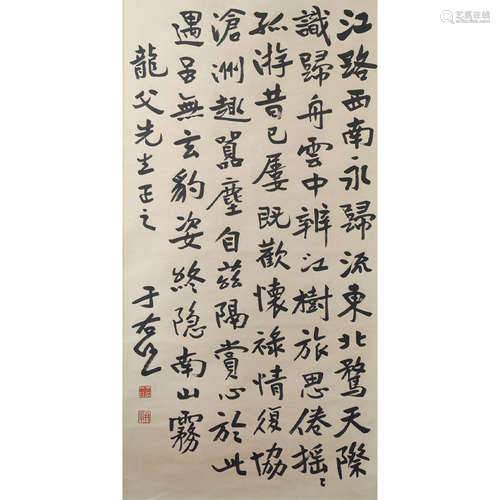 江路西南永歸流東北騖天際
識歸舟雲中辨江樹旅思倦搖〻
孤游昔已屢既歡懷祿情復協
滄洲趣囂塵自茲隔賞心於此
遇無玄豹姿終隐南山霧
龍父先生正之
于右任